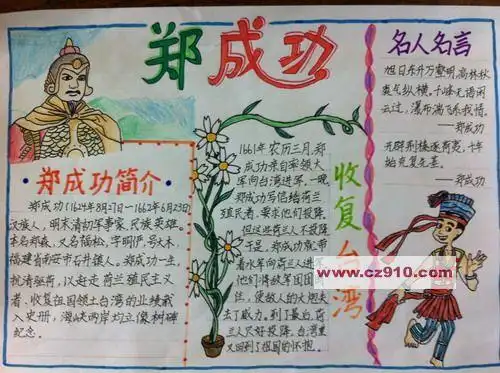 郑成功
郑成功简介
郑成功1624年8月27日—1662年6月23日
汉族人，明末清初军事家，民族英雄。
本名郑森，又名福松，字明俨，号大木，
福建省南安市石井镇人。郑成功一生，
抗清驱荷，以赶走荷兰殖民主义
者，收复祖国领土台湾的业绩载
入史册，海峡两岸均立像树碑
纪念。
1661年农历三月，郑
成功亲自率领大
军向台湾进军，一晚
郑成功写信给荷兰
殖民者，要求他们投降，
但这些荷兰人不投降
于是，郑成功就带
着水军向荷兰人进
他们将敌军团团
住，使敌人的大炮失
去了威力。到了最后，荷
兰人只好投降，台湾重
又回到了祖国的怀抱。
收复台湾
名人名言
旭日东升万壑明，高林秋
爽气纵横。千峰无语闲
云过，瀑布湍飞系我情。
——郑成功
开辟荆榛逐荷夷，十年
始克复先基。
——郑成功
www.cz910.com